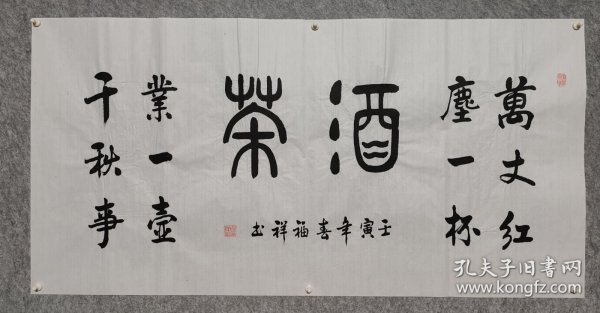 萬丈紅
塵一杯
酒
千秋事
業一壺
茶
壬寅年春福祥书
孔夫子旧书网
www.kongfz.com